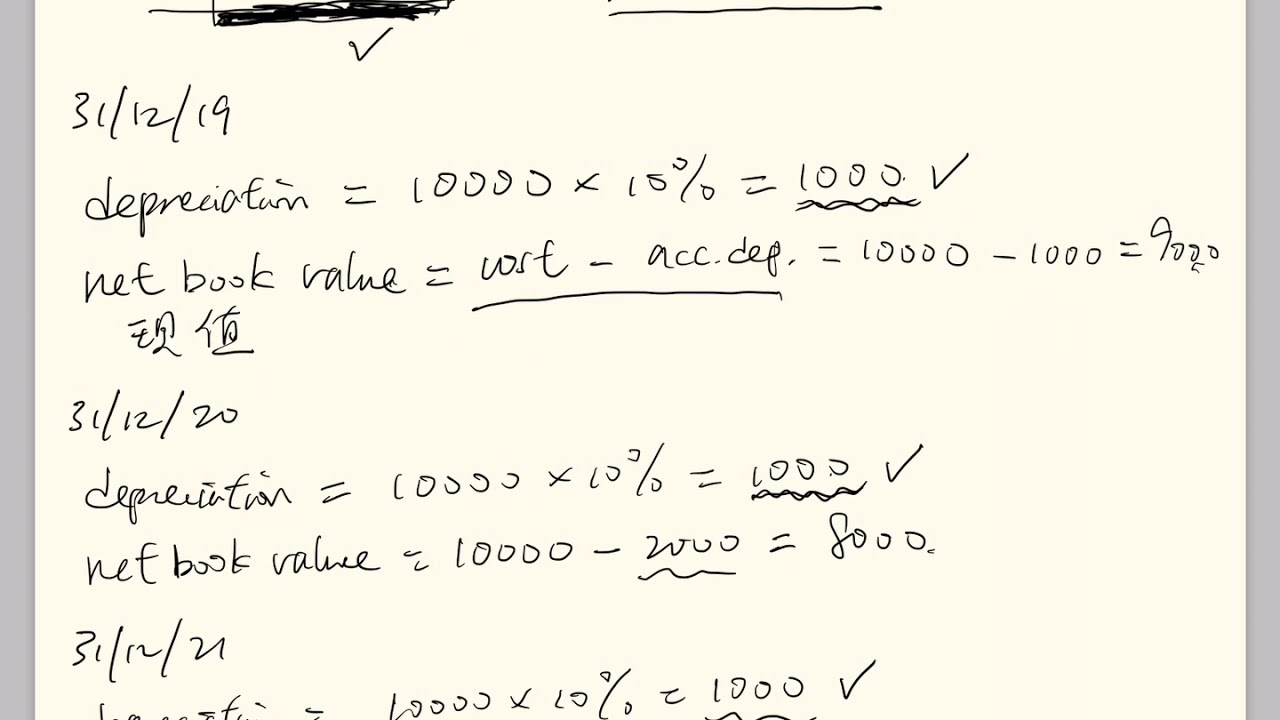 31/12/19
depreciation = 10000 × 10% = 1000 ✓
net book value = cost - acc.dep. = 10000 - 1000 = 9000
现值
31/12/20
depreciation = 10000 × 10% = 1000 ✓
net book value = 10000 - 2000 = 8000.
31/12/21
= 10000 × 10% = 1000 ✓